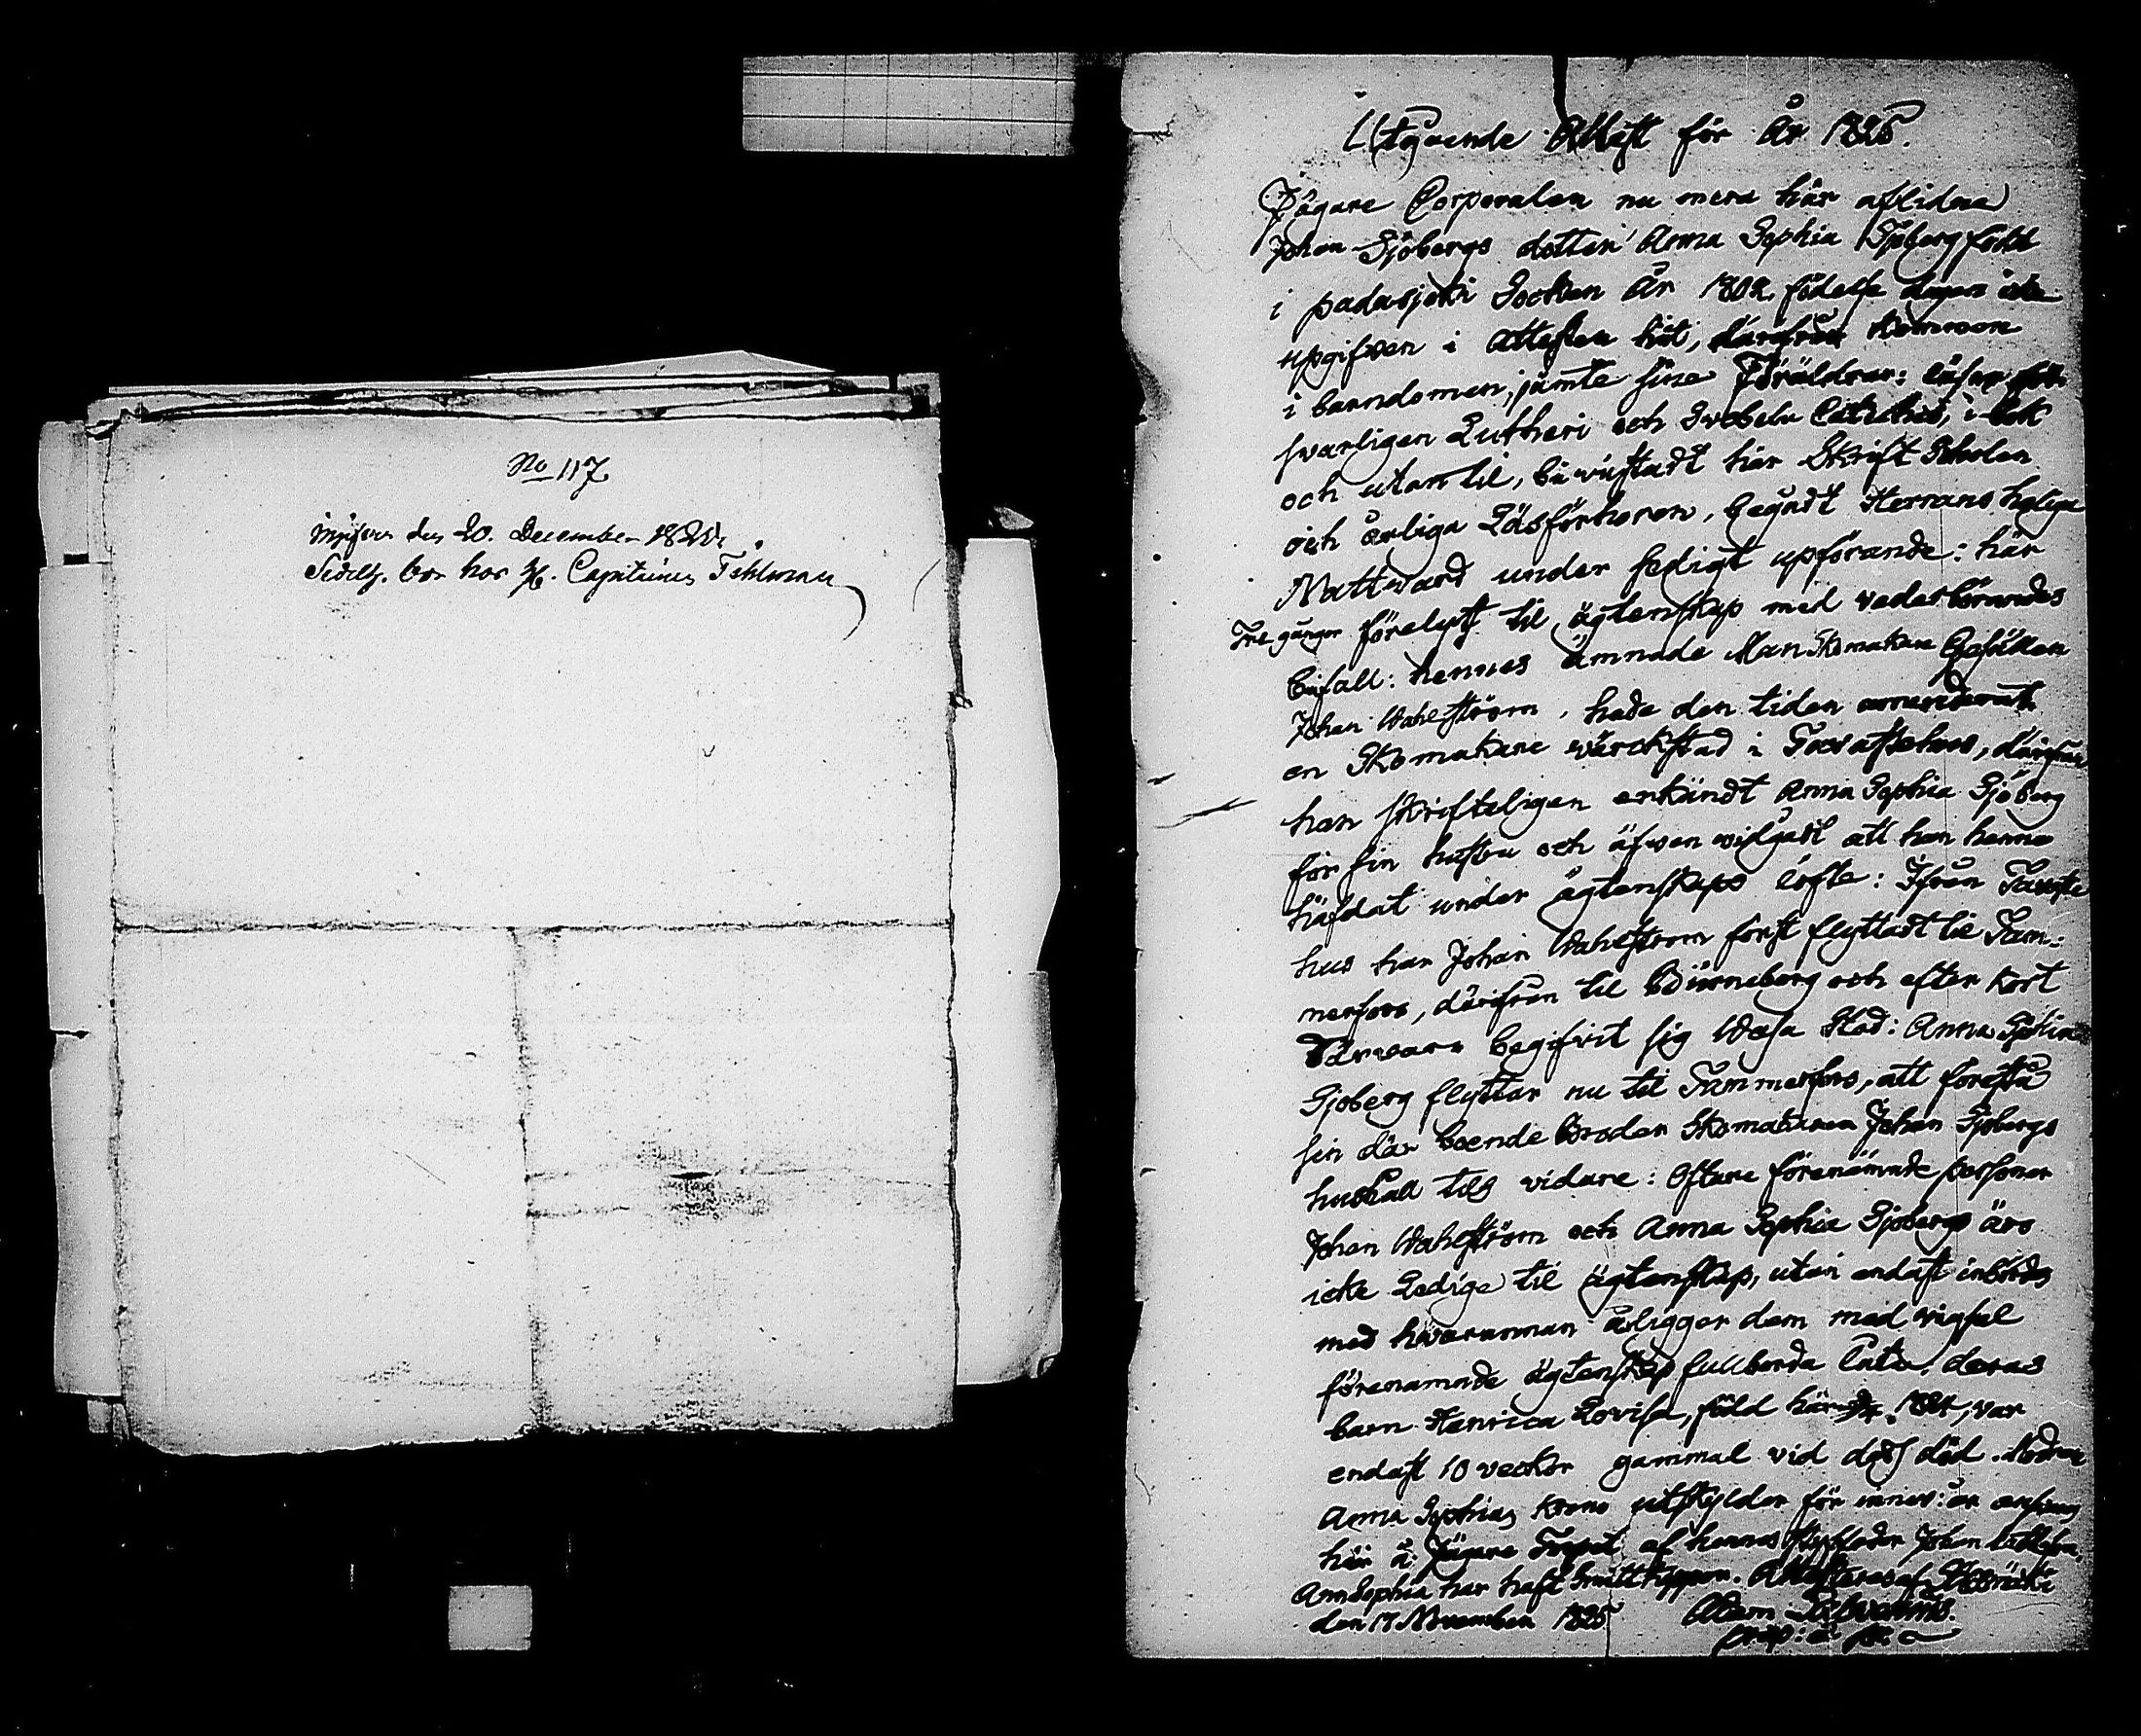 No 117
den 20. December
bor hos H. Capitaines Fehlman
Utgående Attest för År 1825.
Jägare Corporalen nu mera här aflidne
Johan Sjöbergs dotter Anna Sophia Sjöberg född
i padasjoki Socken År 1802, födelse dagen icke
upgifven i Attesten hit, därifrån kommen
i barndomen, jämte sine Föräldrar: läser
svarligen Lutheri och Svebelii Catechis, i bok
och utantil, bivistadt här Skrift Scholan
och årliga Läsförhören, begådt Herrans helige
Nattward under sedigt upförande: här
Tre gånger förelyst til ägtenskap med vederbörandes
bifall: hennes ämnade Man Skomakare Gesällen
Johan Wahlström, hade den tiden
en Skomakare wärckstad i Tavastehus, därifrån
han skrifteligen erkändt Anna Sophia Sjöberg
för sin hustru och äfwen vidgådt att han henne
häfdat under ägtenskaps löfte: Ifrån Tavaste
hus har Johan Wahlström först flyttadt til Tam:
merfors, därifrån til Björneborg och efter kort
därvaro begifvit sig Wasa Stad: Anna Sophia
Sjöberg flyttar nu til Tammerfors, att förestå
sin där boende broder Skomakaren Johan Sjöbergs
hushåll tils vidare: Oftare förenämnde personer
Johan Wahlström och Anna Sophia Sjöberg äro
icke Ledige til ägtenskap, utan endast inbördes
med hwarannan åligger dem med vigsel
förenamnde ägtenskap fullborda låta. deras
barn Henrica Lovisa, född här 1824, var
endast 10 veckor gammal vid dess död. Modren
Anna Sophias Krono utskylder för
här å Jägare Torpet af hennes Johan
AnnSophia har haft Smittkoppor. Attesteras af
den 17 November 1825 Adam